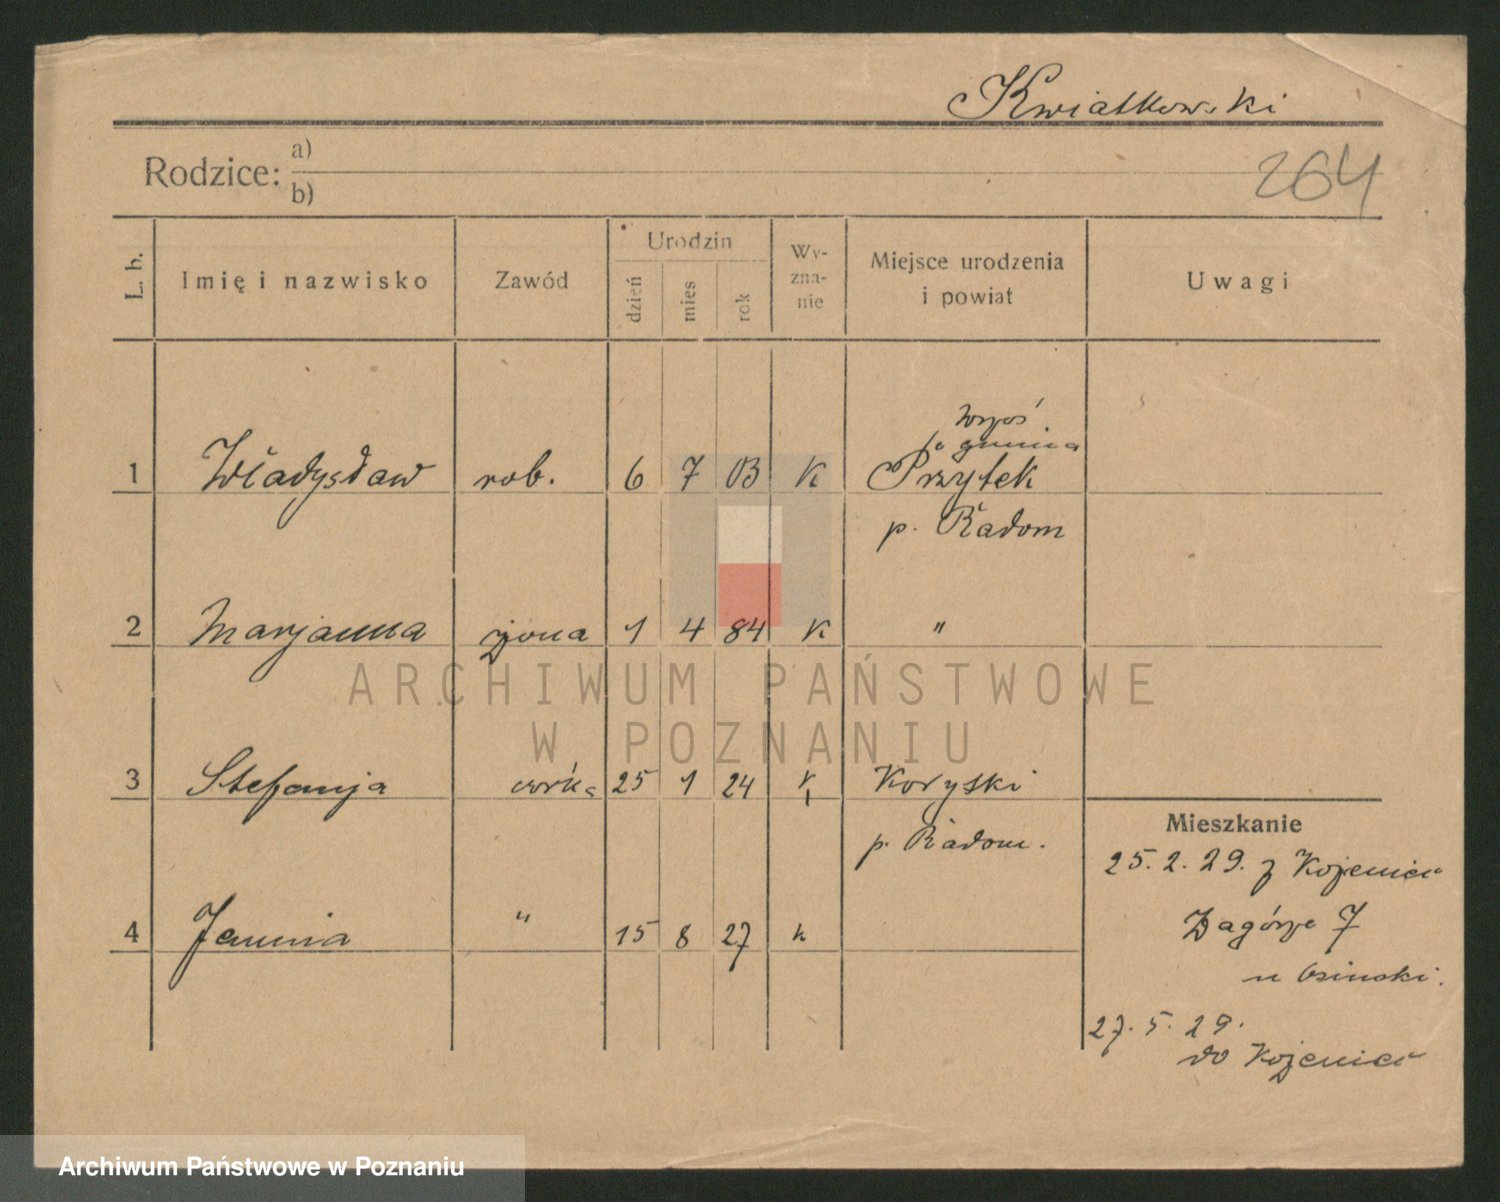 Kwiatkowski
Rodzice: a)
b)
264
L. b.
Imię i nazwisko
Zawód
Urodzin
dzień
mies
rok
Wy-
zna-
nie
Miejsce urodzenia
i powiat
Uwagi
gmina
1 Władysław rob. 6 7 03 K Przytek
p. Radom
2 Marjanna żona 1 4 84 K "
ARCHIWUM PAŃSTWOWE
W POZNANIU
3 Stefanja córka 25 1 24 K Koryski
p. Radom.
Mieszkanie
25. 2. 29. z
4 Janina " 15 8 27 k
Zagórze 7
u Osinski.
27. 5. 29.
do
Archiwum Państwowe w Poznaniu